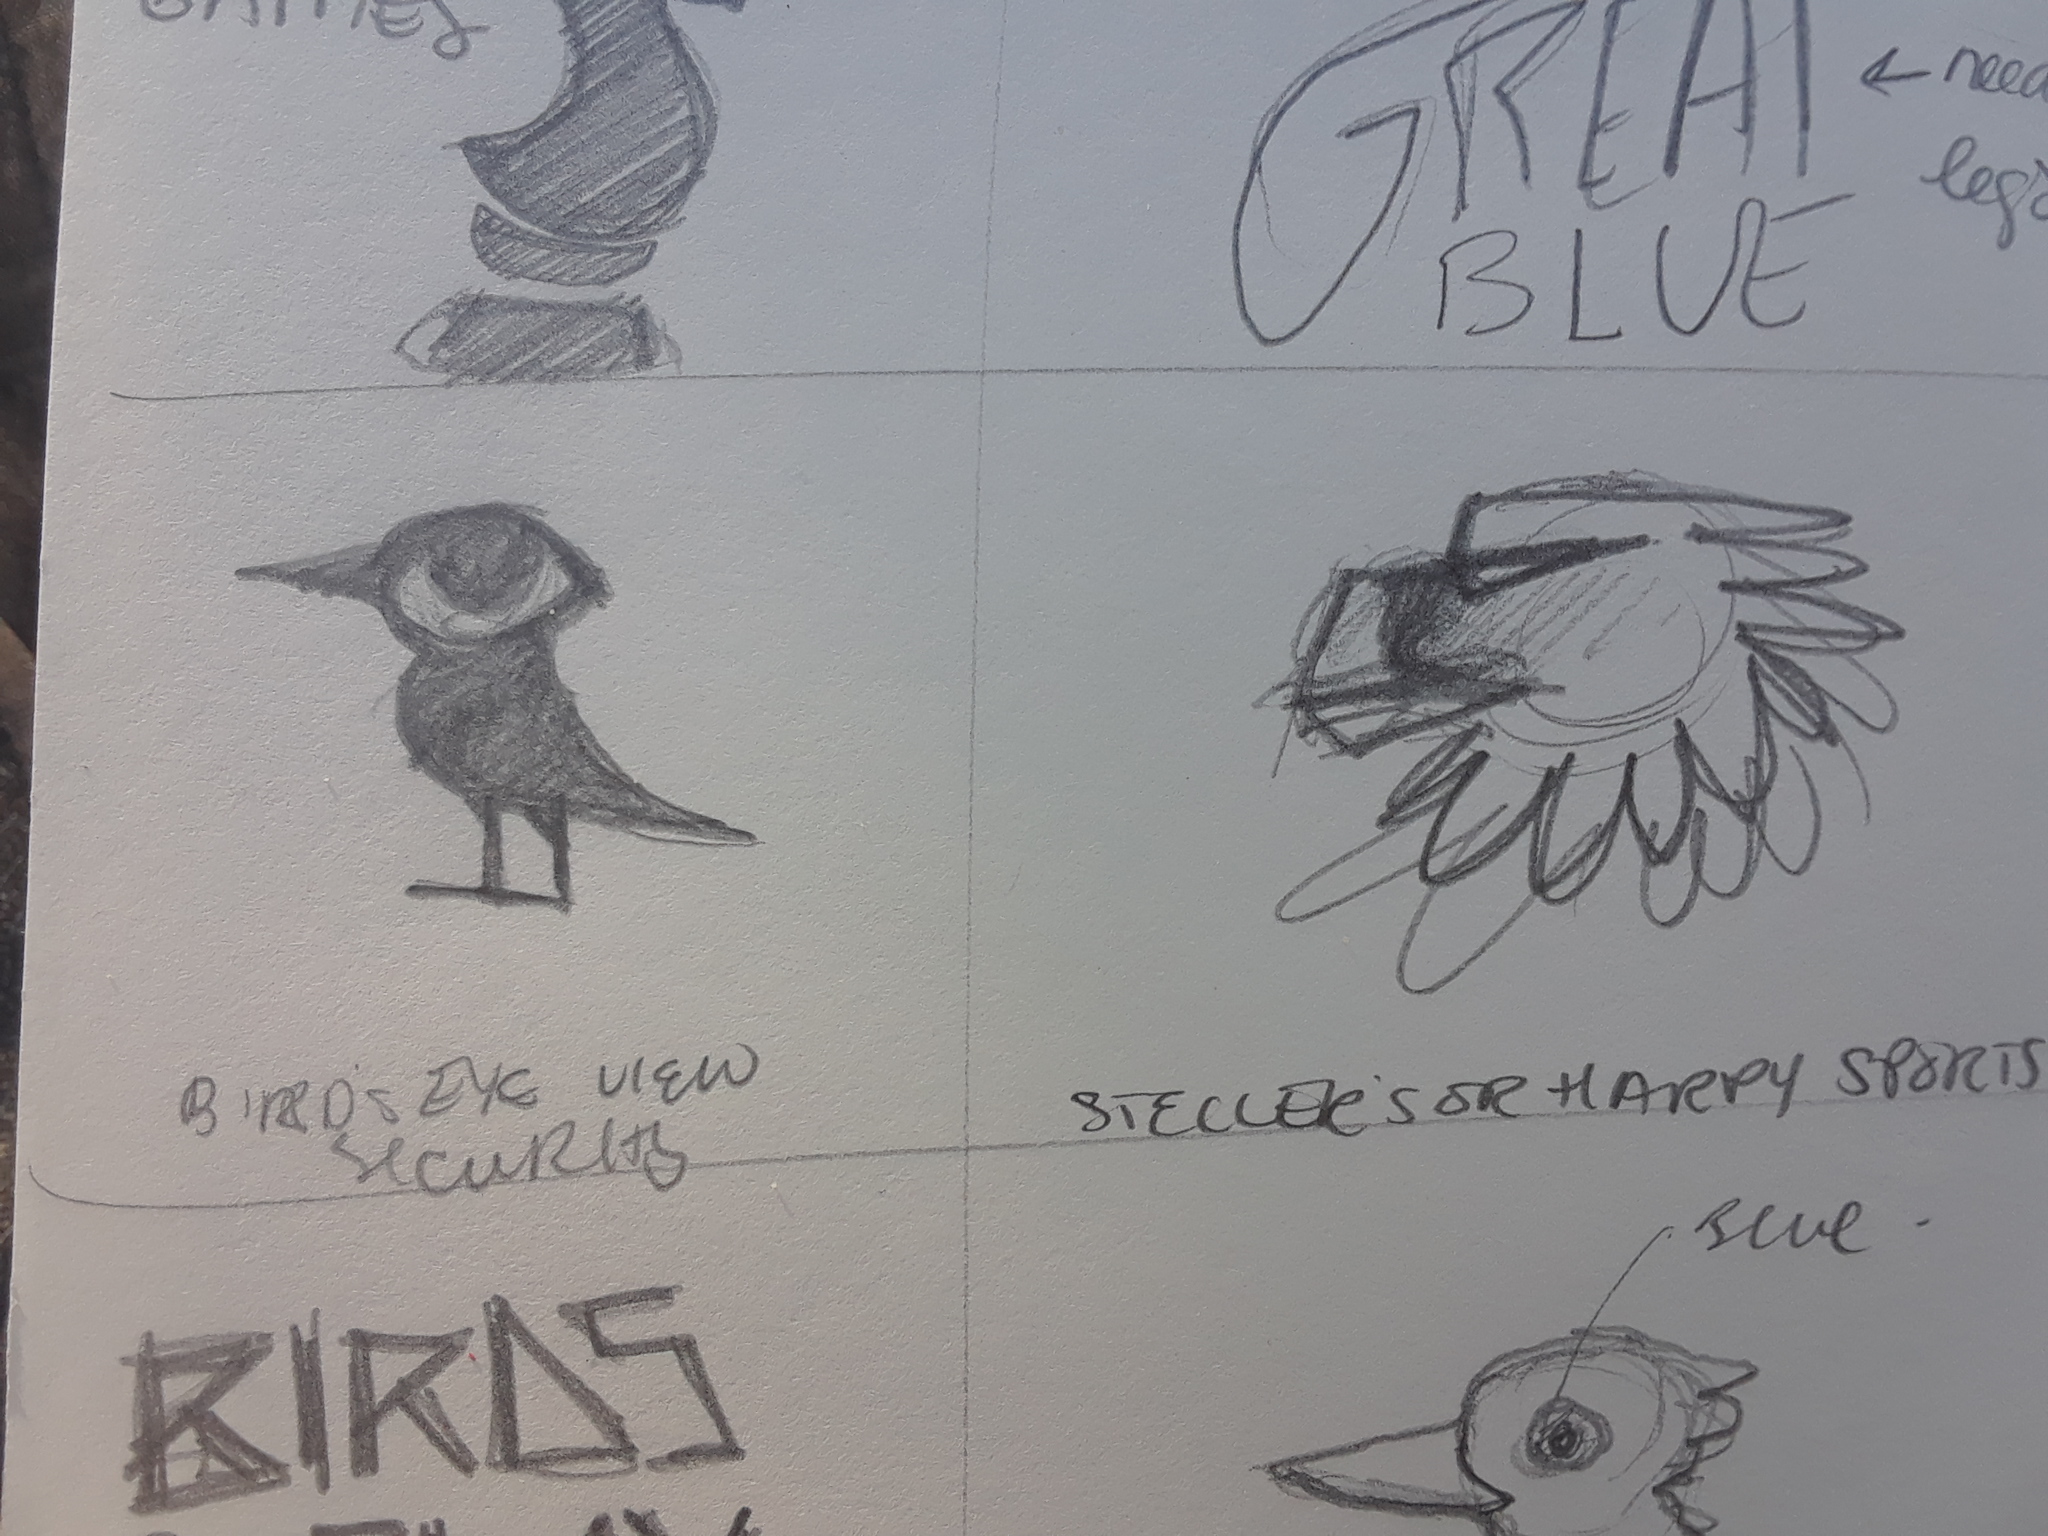 GAMES
GREAT
BLUE
← need
BIRD'S EYE VIEW
SECURITY
STELLER'S OR HARPY SPORTS
BLUE
BIRDS